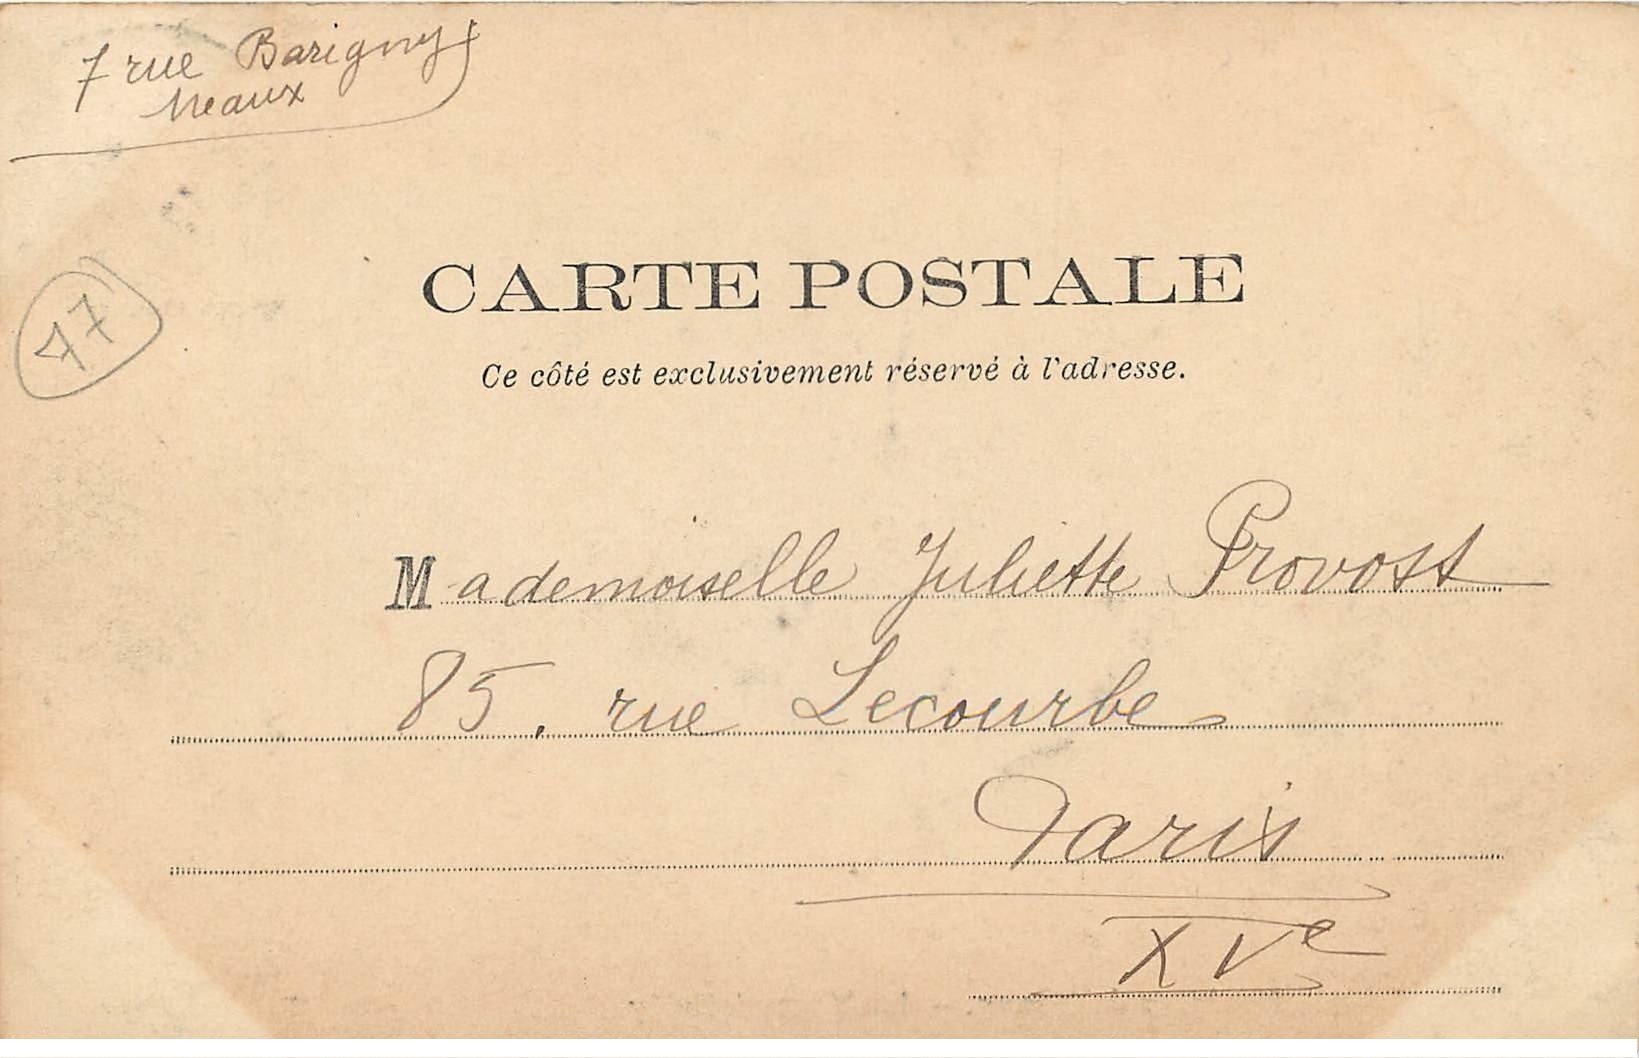 7 rue Barigny
Meaux
77
CARTE POSTALE
Ce côté est exclusivement réservé à l'adresse.
Mademoiselle Juliette Provost
85, rue Lecourbe
Paris
XVe